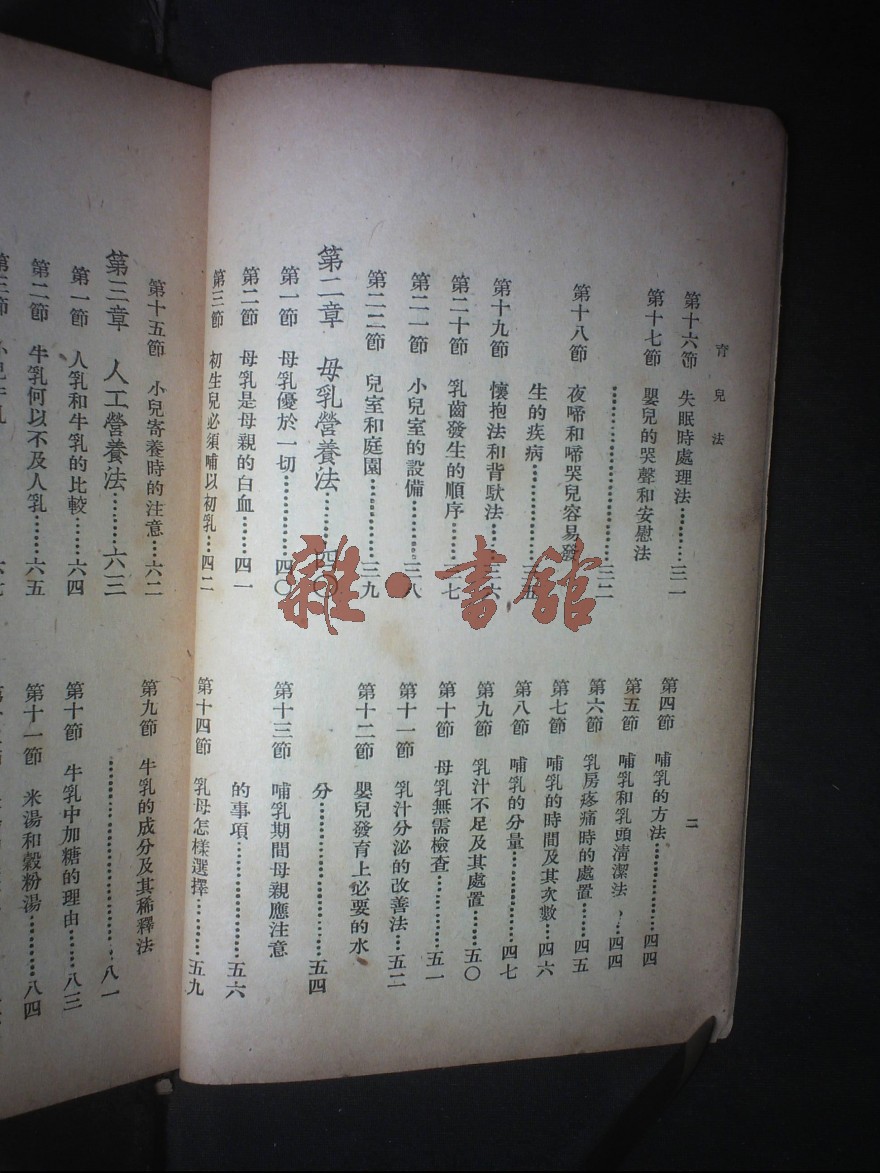 育兒法
二
第十六節 失眠時處理法………三一
第十七節 嬰兒的哭聲和安慰法
………………………三二
第十八節 夜啼和啼哭兒容易發
生的疾病………三五
第十九節 懷抱法和背馱法……三六
第二十節 乳齒發生的順序……三七
第二一節 小兒室的設備………三八
第二二節 兒室和庭園…………三九
第二章 母乳營養法……四〇
第一節 母乳優於一切…………四〇
第二節 母乳是母親的白血……四一
第三節 初生兒必須哺以初乳…四二
第四節 哺乳的方法……………四四
第五節 哺乳和乳頭清潔法……四四
第六節 乳房疼痛時的處置……四五
第七節 哺乳的時間及其次數…四六
第八節 哺乳的分量……………四七
第九節 乳汁不足及其處置……五〇
第十節 母乳無需檢查…………五一
第十一節 乳汁分泌的改善法…五二
第十二節 嬰兒發育上必要的水
分…………………五四
第十三節 哺乳期間母親應注意
的事項……………五六
第十四節 乳母怎樣選擇………五九
第十五節 小兒寄養時的注意…六二
第三章 人工營養法……六三
第一節 人乳和牛乳的比較……六四
第二節 牛乳何以不及人乳……六五
第九節 牛乳的成分及其稀釋法
………………………八一
第十節 牛乳中加糖的理由……八三
第十一節 米湯和穀粉湯………八四
雜·書館